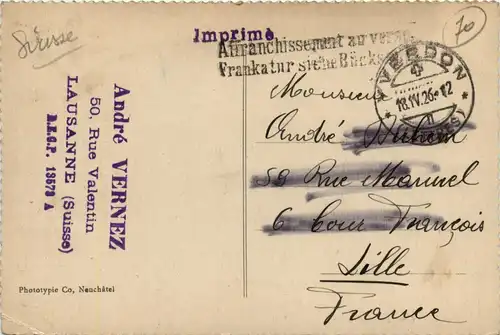 Suisse
70
Imprimé
Affranchissement au verso
Frankatur siehe Rücks
YVERDON
18.IV.26.-12
André VERNEZ
50, Rue Valentin
LAUSANNE (Suisse)
Monsieur
André
59 Rue Manuel
6 Cour François
Lille
France
Phototypie Co, Neuchâtel